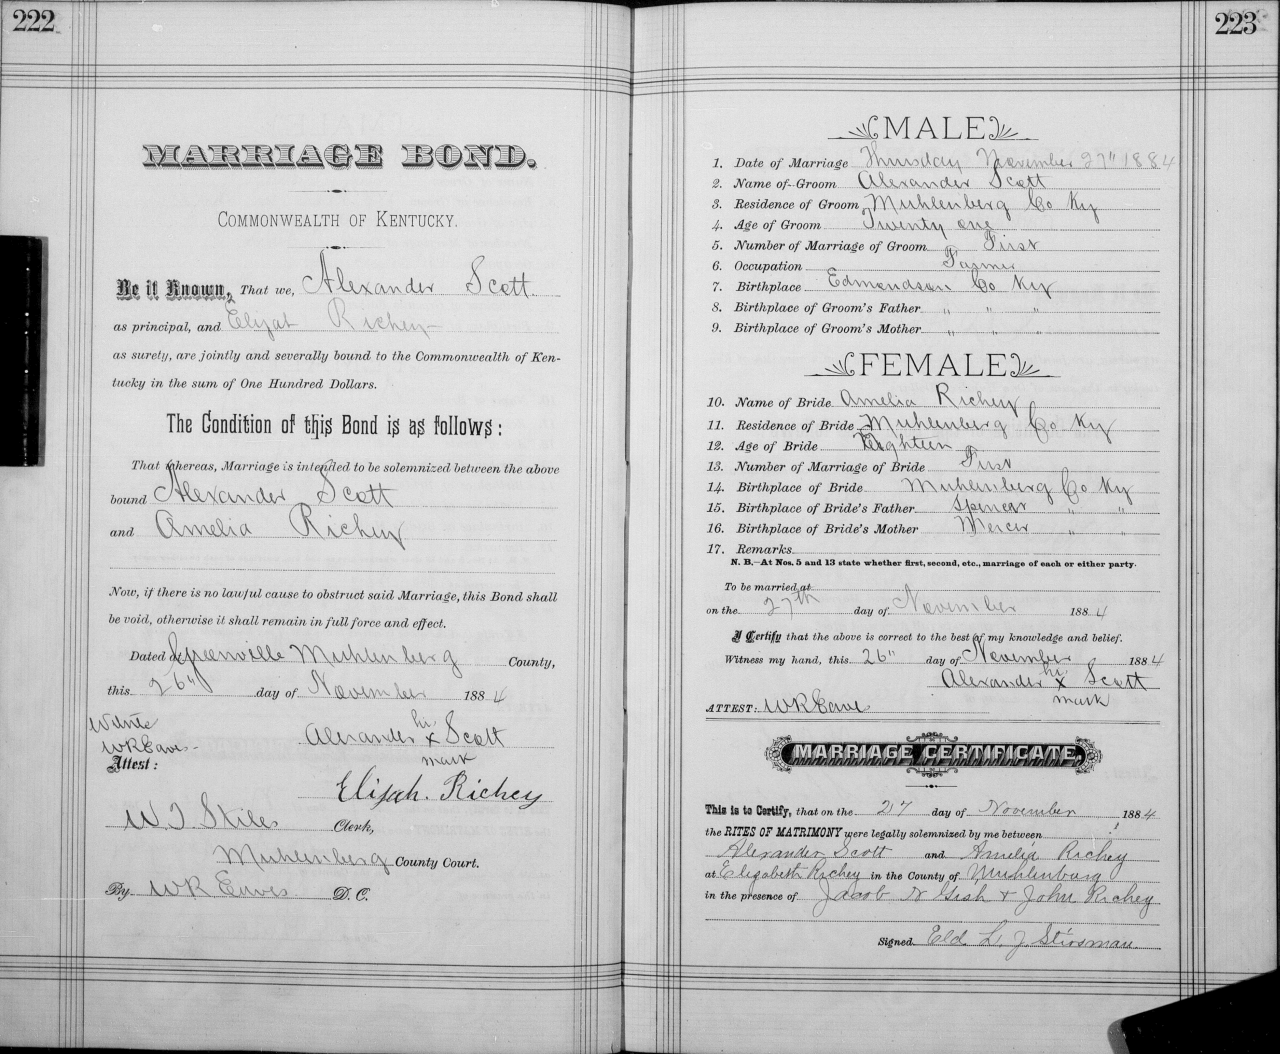 222
MARRIAGE BOND.
COMMONWEALTH OF KENTUCKY.
Be it Known, That we, Alexander Scott
as principal, and Elijah Richey
as surety, are jointly and severally bound to the Commonwealth of Ken-
tucky in the sum of One Hundred Dollars.
The Condition of this Bond is as follows:
That whereas, Marriage is intended to be solemnized between the above
bound Alexander Scott
and Amelia Richey
Now, if there is no lawful cause to obstruct said Marriage, this Bond shall
be void, otherwise it shall remain in full force and effect.
Dated at Greenville Muhlenberg County,
this 26" day of November 1884
WREaves
Alexander his x mark Scott
Attest:
Elijah. Richey
W. J. Skiles Clerk,
Muhlenberg County Court.
By WR Eaves D. C.
223
MALE
1. Date of Marriage Thursday November 27" 1884
2. Name of Groom Alexander Scott
3. Residence of Groom Muhlenberg Co Ky
4. Age of Groom Twenty one
5. Number of Marriage of Groom First
6. Occupation Farmer
7. Birthplace Edmondson Co Ky
8. Birthplace of Groom's Father " " "
9. Birthplace of Groom's Mother " " "
FEMALE
10. Name of Bride Amelia Richey
11. Residence of Bride Muhlenberg Co Ky
12. Age of Bride Eighteen
13. Number of Marriage of Bride First
14. Birthplace of Bride Muhlenberg Co Ky
15. Birthplace of Bride's Father Spencer " "
16. Birthplace of Bride's Mother Mercer " "
17. Remarks
N. B.—At Nos. 5 and 13 state whether first, second, etc., marriage of each or either party.
To be married at
on the 27th day of November 1884
I Certify that the above is correct to the best of my knowledge and belief.
Witness my hand, this 26" day of November 1884
Alexander his x mark Scott
ATTEST: WREaves
MARRIAGE CERTIFICATE.
This is to Certify, that on the 27 day of November 1884
the RITES OF MATRIMONY were legally solemnized by me between
Alexander Scott and Amelia Richey
at Elizabeth Richey in the County of Muhlenburg
in the presence of Jacob N Gish & John Richey
Signed. Eld L. J. Stirsman.